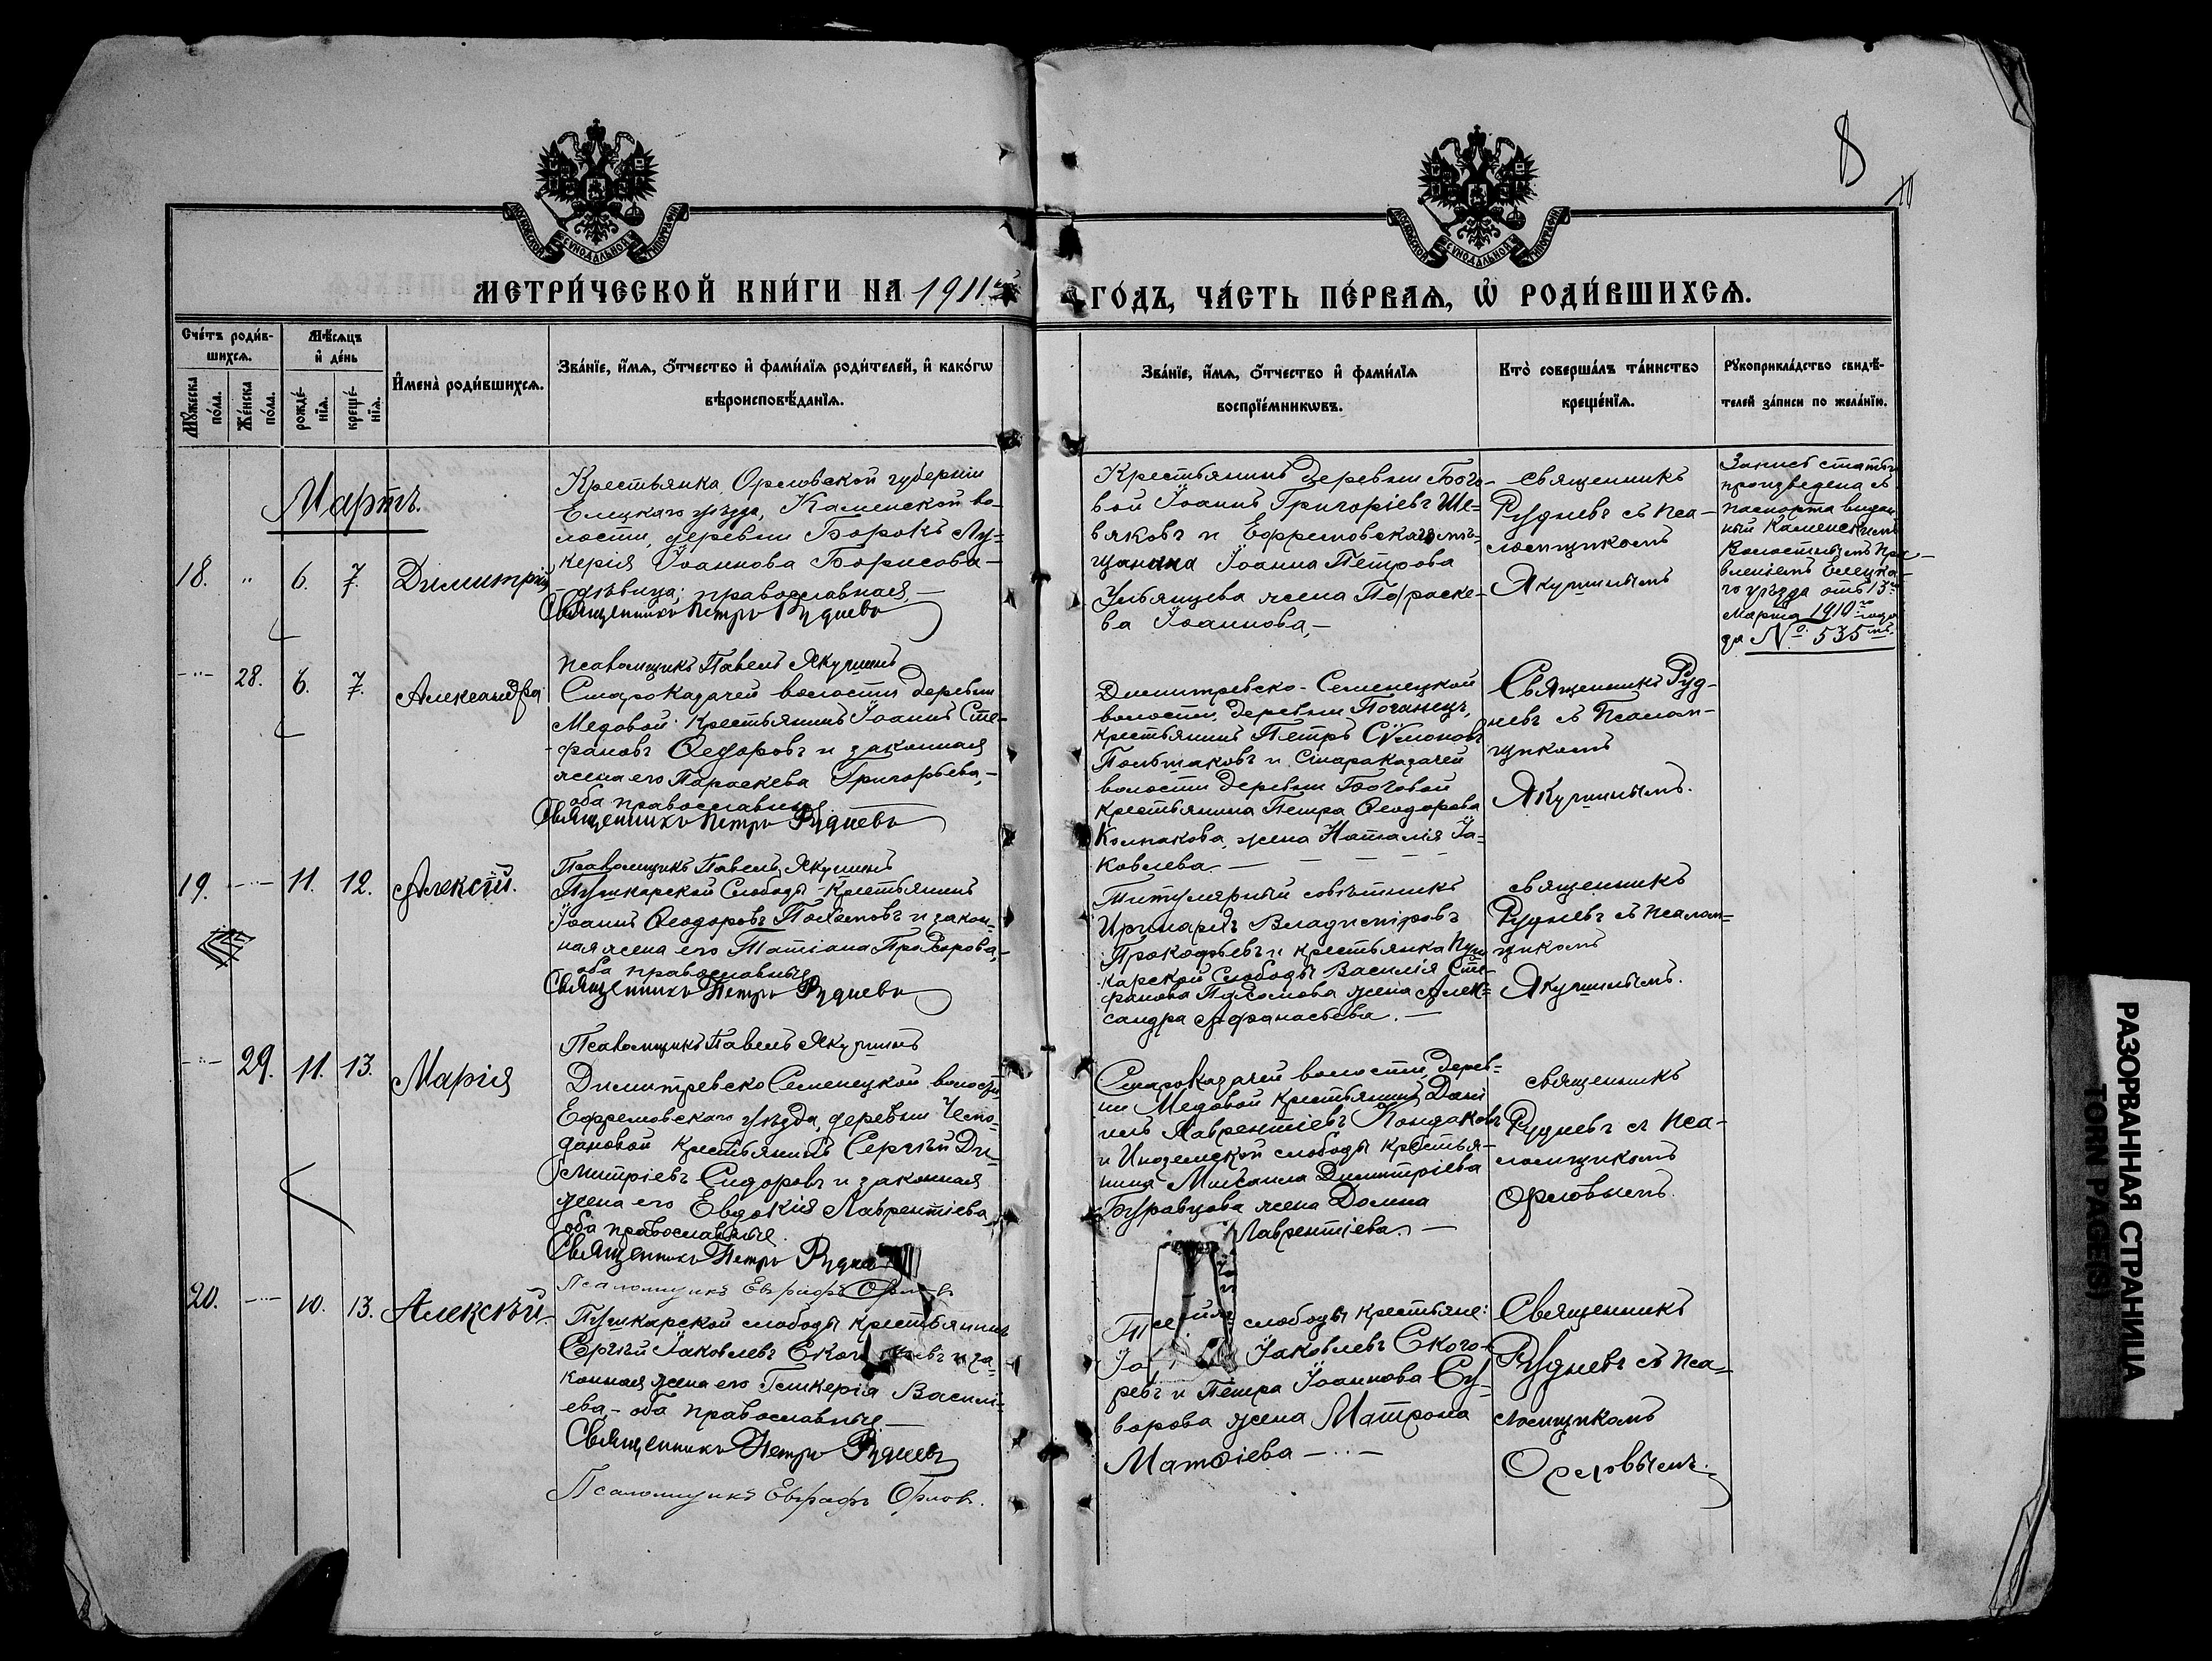 8
10
МОСКОВСКОЙ СѴНОДАЛЬНОЙ ТИПОГРАФІИ
МОСКОВСКОЙ СѴНОДАЛЬНОЙ ТИПОГРАФІИ
МЕТРИ́ЧЕСКОЙ КНИ́ГИ НА 1911й ГО́ДЪ, ЧА́СТЬ ПЕ́РВАѦ, Ѽ РОДИ́ВШИХСѦ.
Сче́тъ роди́в-
шихсѧ.
Мѣ́сѧцъ
и҆ де́нь
Мꙋ́жеска
по́ла.
Же́нска
по́ла.
рожде́-
нїѧ.
креще́-
нїѧ.
И҆мена̀ роди́вшихсѧ.
Зва́нїе, и҆́мѧ, ѻ҆́тчество и҆ фами́лїѧ роди́телей, и҆ како́гѡ
вѣроисповѣ́данїѧ.
Зва́нїе, и҆́мѧ, ѻ҆́тчество и҆ фами́лїѧ
воспрїе́мникѡвъ.
Кто̀ соверша́лъ та́инство
креще́нїѧ.
Рꙋкоприкла́дство свидѣ́-
телей за́писи по жела́нїю.
Мартъ.
18. " 6. 7. Димитрій
Крестьянка Орловской губерніи
Елецкаго уѣзда, Каменской во-
лости, деревни Борокъ Лу-
керія Іоаннова Борисова —
дѣвица; православная. —
Священникъ Петръ Рудневъ
Псаломщикъ Павелъ Якушинъ
Крестьянинъ деревни Бого-
вой Іоаннъ Григоріевъ Ше-
вяковъ и Ефремовскаго мѣ-
щанина Іоанна Петрова
Ульянцева жена Параске-
ва Іоаннова, —
священникъ
Рудневъ съ пса-
ломщикомъ
Якушинымъ
Запись статьи
произведена съ
паспорта выдан
ный Каменскимъ
Волостнымъ Пра-
вленіемъ Елецка-
го уѣзда отъ 13го
Марта 1910го года
за № 535мъ.
-"- 28. 6. 7. Александра
Староказачей волости деревни
Медовой крестьянинъ Іоаннъ Сте-
фановъ Ѳедоровъ и законная
жена его Параскева Григорьева, —
оба православные. —
Священникъ Петръ Рудневъ
Псаломщикъ Павелъ Якушинъ
Димитревско-Семенецкой
волости, деревни Поганецъ,
крестьянинъ Петръ Сѵмоновъ
Польшаковъ и Староказачей
волости деревни Боговой
крестьянина Петра Ѳеодорова
Колпакова, жена Наталія Іа-
ковлева. —
Священникъ Руд-
невъ съ Псалом-
щикомъ
Якушинымъ.
19. -"- 11. 12. Алексій.
Пушкарской Слободы крестьянинъ
Іоаннъ Ѳеодоровъ Пахомовъ и закон-
ная жена его Татіана Прохорова, —
оба православные
Священникъ Петръ Рудневъ
Псаломщикъ Павелъ Якушинъ
Титулярный совѣтникъ
Иринархъ Владиміровъ
Прокофьевъ и крестьянка Пуш
карской Слободы Василія Сте-
фанова Пахомова жена Алек-
сандра Афанасьева. —
священникъ
Рудневъ съ псалом-
щикомъ
Якушинымъ.
-"- 29. 11. 13. Марія
Димитревско Семенецкой волости,
Ефремовскаго уѣзда, деревни Чемо-
дановой крестьянинъ Сергій Ди-
митріевъ Сидоровъ и законная
жена его Евдокія Лаврентіева,
оба православные.
Священникъ Петръ Рудневъ
Псаломщикъ Евграфъ Орловъ
Староказачей волости, дерев-
ни Медовой крестьянинъ Дани
илъ Лаврентіевъ Кондаковъ
и Иноземской слободы крестья-
нина Михаила Димитріева
Буравцова жена Домна
Лаврентіева. —
священникъ
Рудневъ съ пса-
ломщикомъ
Орловымъ.
20. -"- 10. 13. Алексѣй
Пушкарской слободы крестьянинъ
Сергій Іаковлевъ и за
конная жена его Гликерія Василі-
ева, — оба православные —
Священникъ Петръ Рудневъ
Псаломщикъ Евграфъ Орловъ.
слободы крестьяне:
Іаковлевъ Ского-
ревъ и Петра Іоаннова Су-
ворова жена Матрона
Матѳіева —"—
Священникъ
Рудневъ съ пса-
ломщикомъ
Орловымъ.
РАЗОРВАННАЯ СТРАНИЦА
TORN PAGE(S)